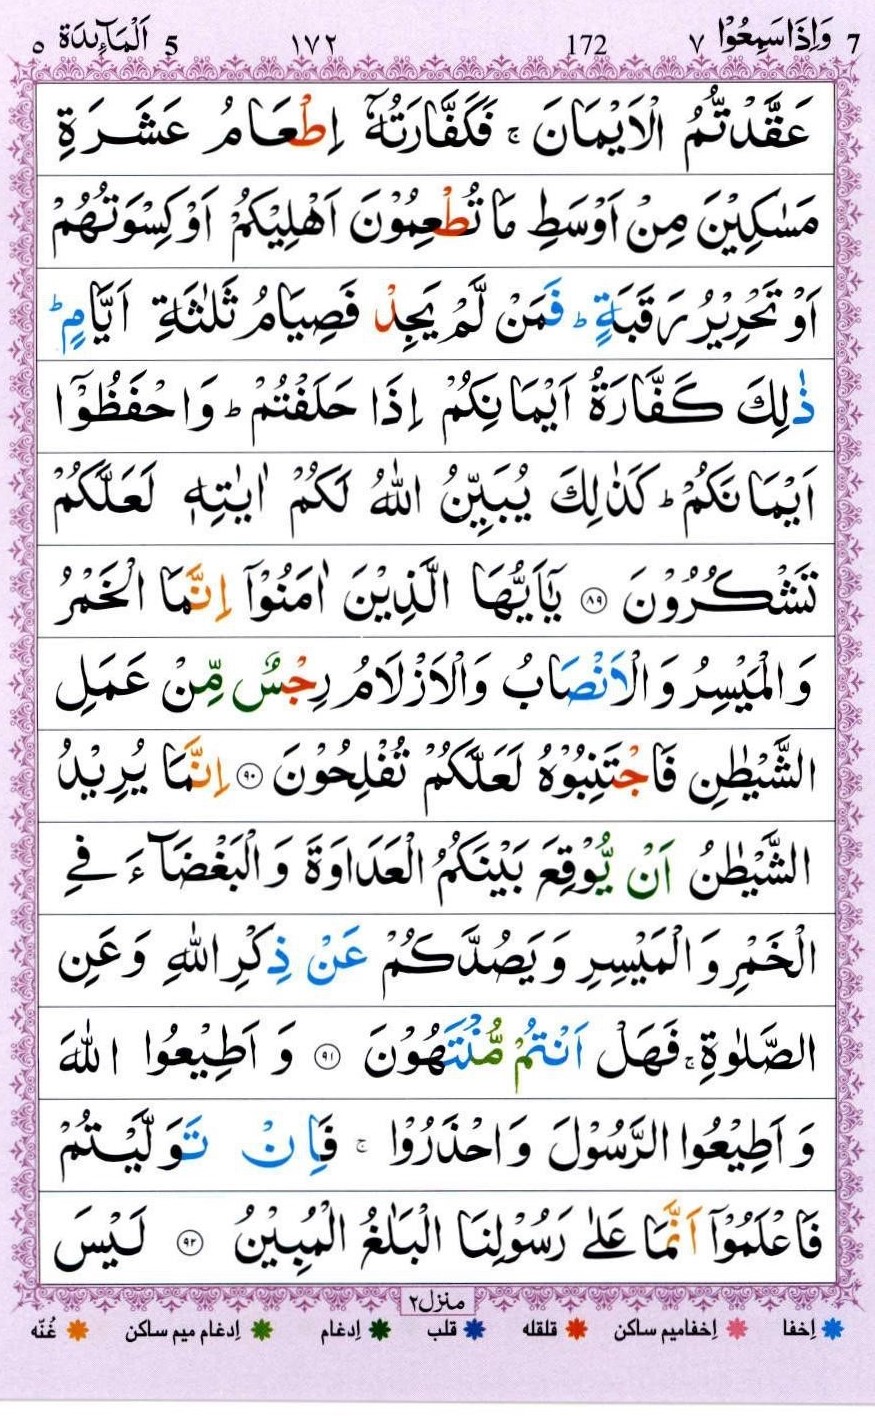 وَاِذَا سَمِعُوْا ۷ 7 172 ۱۷۲ اَلْمَآئِدَة ۵ 5
عَقَّدْتُّمُ الْاَيْمَانَ ۚ فَكَفَّارَتُهٗۤ اِطْعَامُ عَشَرَةِ
مَسٰكِيْنَ مِنْ اَوْسَطِ مَا تُطْعِمُوْنَ اَهْلِيْكُمْ اَوْ كِسْوَتُهُمْ
اَوْ تَحْرِيْرُ رَقَبَةٍ ؕ فَمَنْ لَّمْ يَجِدْ فَصِيَامُ ثَلٰثَةِ اَيَّامٍ ؕ
ذٰلِكَ كَفَّارَةُ اَيْمَانِكُمْ اِذَا حَلَفْتُمْ ؕ وَاحْفَظُوْۤا
اَيْمَانَكُمْ ؕ كَذٰلِكَ يُبَيِّنُ اللّٰهُ لَكُمْ اٰيٰتِهٖ لَعَلَّكُمْ
تَشْكُرُوْنَ ۝۸۹ يٰۤاَيُّهَا الَّذِيْنَ اٰمَنُوْۤا اِنَّمَا الْخَمْرُ
وَالْمَيْسِرُ وَالْاَنْصَابُ وَالْاَزْلَامُ رِجْسٌ مِّنْ عَمَلِ
الشَّيْطٰنِ فَاجْتَنِبُوْهُ لَعَلَّكُمْ تُفْلِحُوْنَ ۝۹۰ اِنَّمَا يُرِيْدُ
الشَّيْطٰنُ اَنْ يُّوْقِعَ بَيْنَكُمُ الْعَدَاوَةَ وَالْبَغْضَآءَ فِي
الْخَمْرِ وَالْمَيْسِرِ وَيَصُدَّكُمْ عَنْ ذِكْرِ اللّٰهِ وَعَنِ
الصَّلٰوةِ ۚ فَهَلْ اَنْتُمْ مُّنْتَهُوْنَ ۝۹۱ وَاَطِيْعُوا اللّٰهَ
وَاَطِيْعُوا الرَّسُوْلَ وَاحْذَرُوْا ۚ فَاِنْ تَوَلَّيْتُمْ
فَاعْلَمُوْۤا اَنَّمَا عَلٰى رَسُوْلِنَا الْبَلٰغُ الْمُبِيْنُ ۝۹۲ لَيْسَ
منزل۲
اِخفا اِخفامیم ساکن قلقله قلب اِدغام اِدغام میم ساکن غُنّه